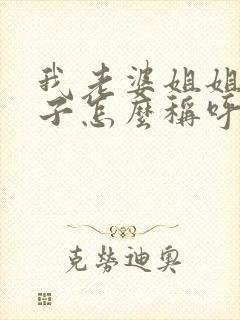 我老婆姐姐
子怎麼稱呼
克勞迪奧